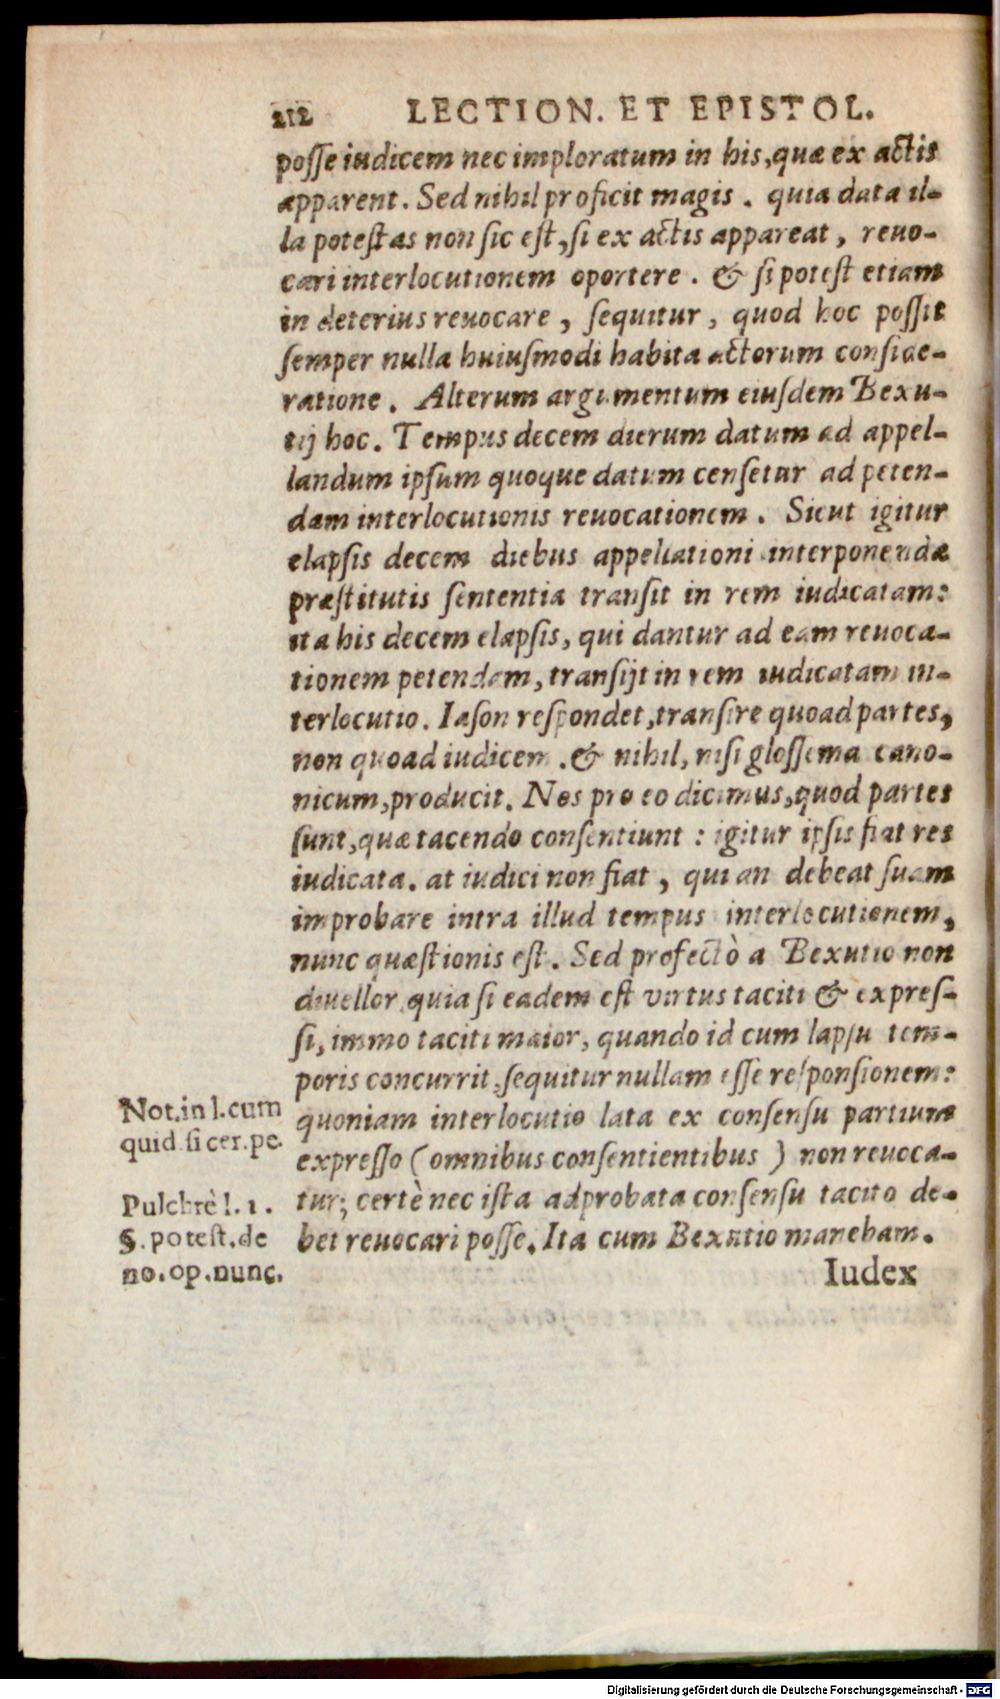 212 LECTION. ET EPISTOL.
posse iudicem nec imploratum in his, quæ ex actis
apparent. Sed nihil proficit magis. quia data il-
la potestas non sic est, si ex actis appareat, reuo-
cari interlocutionem oportere. & si potest etiam
in deterius reuocare, sequitur, quod hoc possit
semper nulla huiusmodi habita actorum conside-
ratione. Alterum argumentum eiusdem Bexu-
tij hoc. Tempus decem dierum datum ad appel-
landum ipsum quoque datum censetur ad peten-
dam interlocutionis reuocationem. Sicut igitur
elapsis decem diebus appellationi interponendæ
præstitutis sententia transit in rem iudicatam:
ita his decem elapsis, qui dantur ad eam reuoca-
tionem petendam, transijt in rem iudicatam in-
terlocutio. Iason respondet, transire quoad partes,
non quoad iudicem. & nihil, nisi glossema cano-
nicum, producit. Nos pro eo dicimus, quod partes
sunt, quæ tacendo consentiunt: igitur ipsis fiat res
iudicata. at iudici non fiat, qui an debeat suam
improbare intra illud tempus interlocutionem,
nunc quæstionis est. Sed profectò a Bexutio non
diuellor, quia si eadem est virtus taciti & expres-
si, immo taciti maior, quando id cum lapsu tem-
poris concurrit, sequitur nullam esse responsionem:
quoniam interlocutio lata ex consensu partium
expresso (omnibus consentientibus) non reuoca-
tur; certè nec ista adprobata consensu tacito de-
bet reuocari posse. Ita cum Bexutio manebam.
Iudex
Not. in l. cum
quid. si cer. pe.
Pulchrè l. 1.
§. potest. de
no. op. nunc.
Digitalisierung gefördert durch die Deutsche Forschungsgemeinschaft - DFG